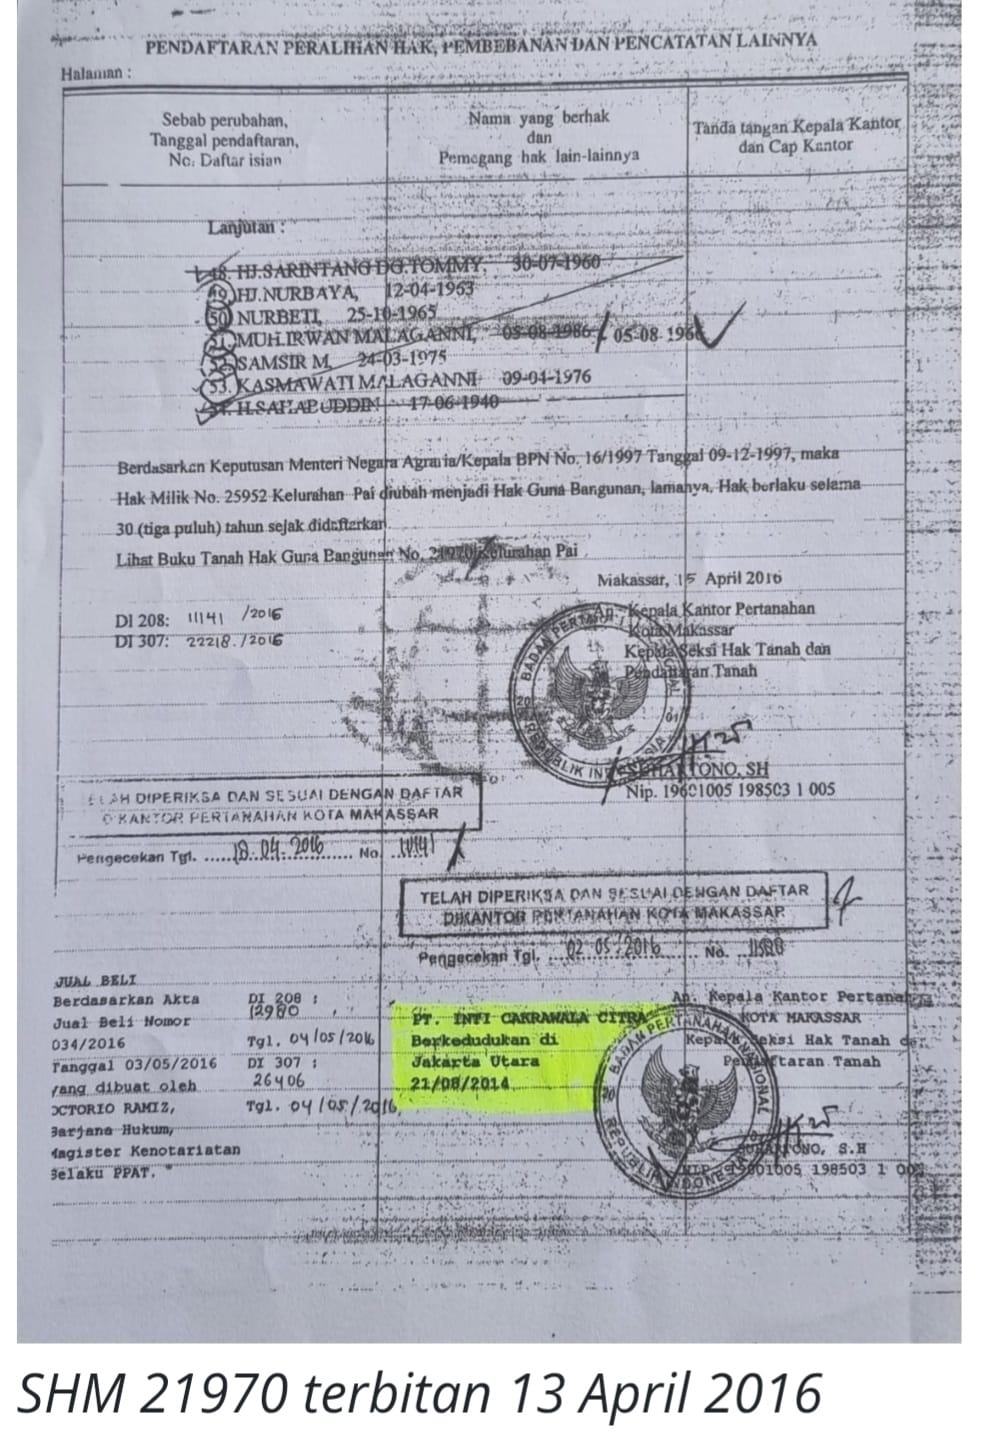 PENDAFTARAN PERALIHAN HAK, PEMBEBANAN DAN PENCATATAN LAINNYA
Halaman :
Sebab perubahan,
Tanggal pendaftaran,
No. Daftar isian
Nama yang berhak
dan
Pemegang hak lain-lainnya
Tanda tangan Kepala Kantor
dan Cap Kantor
Lanjutan :
48. HJ.SARINTANG DG.TOMMY, 30-07-1960
49. HJ.NURBAYA, 12-04-1963
50. NURBETI, 25-10-1965
51. MUH.IRWAN MALAGANNI, 05-08-1986 / 05-08-196
52. SAMSIR M, 24-03-1975
53. KASMAWATI MALAGANNI 09-04-1976
54. H.SAHABUDDIN 17-06-1940
Berdasarkan Keputusan Menteri Negara Agraria/Kepala BPN No. 16/1997 Tanggal 09-12-1997, maka
Hak Milik No. 25952 Kelurahan Pai diubah menjadi Hak Guna Bangunan, lamanya Hak berlaku selama
30 (tiga puluh) tahun sejak didaftarkan
Lihat Buku Tanah Hak Guna Bangunan No. 21970/Kelurahan Pai
Makassar, 15 April 2016
DI 208: 11141 /2016
DI 307: 22218 /2016
An. Kepala Kantor Pertanahan
Kota Makassar
Kepala Seksi Hak Tanah dan
Pendaftaran Tanah
BADAN PERTANAHAN NASIONAL
REPUBLIK INDONESIA
SEHARTONO, SH
Nip. 19601005 198503 1 005
ELAH DIPERIKSA DAN SESUAI DENGAN DAFTAR
DIKANTOR PERTANAHAN KOTA MAKASSAR
Pengecekan Tgl. 18.04.2016 No. 11141
TELAH DIPERIKSA DAN SESUAI DENGAN DAFTAR
DIKANTOR PERTANAHAN KOTA MAKASSAR
Pengecekan Tgl. 02.05/2016 No.
JUAL BELI
Berdasarkan Akta
Jual Beli Nomor
034/2016
Tanggal 03/05/2016
yang dibuat oleh
OCTORIO RAMIZ,
Sarjana Hukum,
Magister Kenotariatan
Selaku PPAT.
DI 208 :
12980
Tgl. 04/05/2016
DI 307 :
26406
Tgl. 04/05/2016
PT. INTI CAKRAWALA CITRA
Berkedudukan di
Jakarta Utara
21/08/2014
An. Kepala Kantor Pertanahan
KOTA MAKASSAR
Kepala Seksi Hak Tanah dan
Pendaftaran Tanah
BADAN PERTANAHAN NASIONAL
REPUBLIK INDONESIA
SEHARTONO, S.H
NIP. 19601005 198503 1 005
SHM 21970 terbitan 13 April 2016